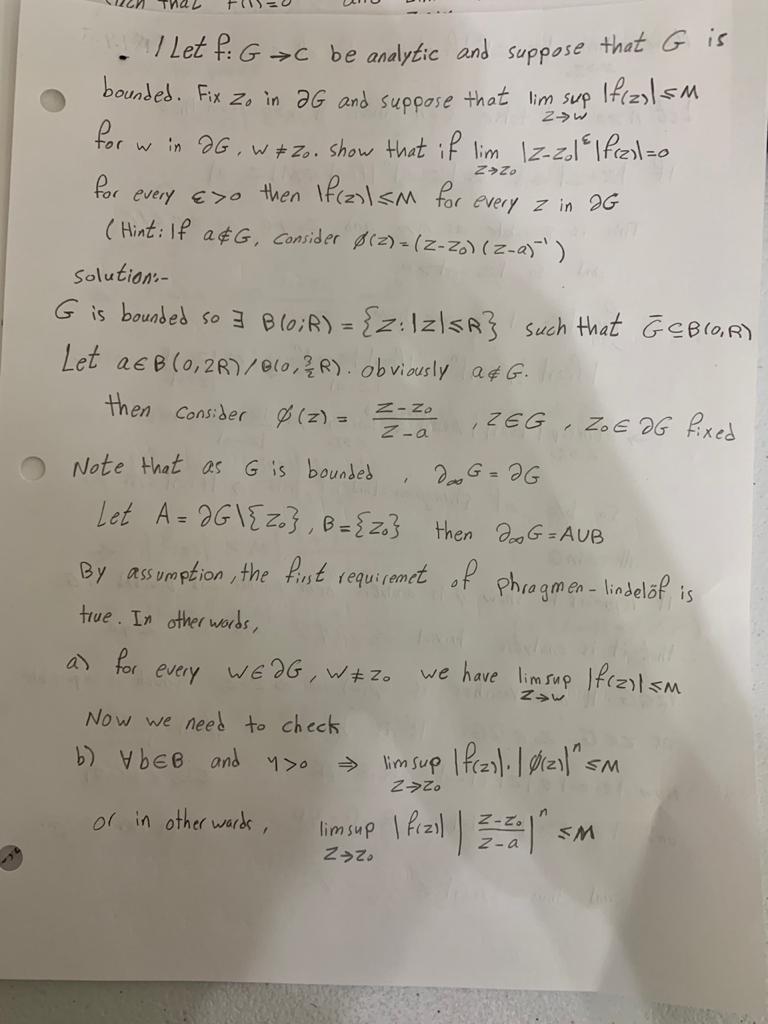 such that f(1)=0 and
. 1 Let f: G → C be analytic and suppose that G is
bounded. Fix z₀ in ∂G and suppose that lim sup |f(z)| ≤ M
z→w
for w in ∂G, w ≠ z₀. show that if lim |z-z₀|^ε |f(z)| = 0
z→z₀
for every ε>0 then |f(z)| ≤ M for every z in ∂G
(Hint: If a ∉ G, consider Ø(z) = (z-z₀)(z-a)⁻¹)
solution:-
G is bounded so ∃ B(0;R) = {z: |z| ≤ R} such that G̅ ⊆ B(0,R)
Let a ∈ B(0,2R)/B(0,3/2 R). obviously a ∉ G.
then consider Ø(z) = (z-z₀)/(z-a) , z ∈ G , z₀ ∈ ∂G fixed
Note that as G is bounded , ∂∞G = ∂G
Let A = ∂G\{z₀}, B = {z₀} then ∂∞G = A∪B
By assumption, the first requiremet of phragmen-lindelöf is
true. In other words,
a) for every w ∈ ∂G, w ≠ z₀ we have lim sup |f(z)| ≤ M
z→w
Now we need to check
b) ∀ b ∈ B and η>0 ⇒ lim sup |f(z)|.|Ø(z)|^η ≤ M
z→z₀
or in other wards, lim sup |f(z)| |(z-z₀)/(z-a)|^η ≤ M
z→z₀